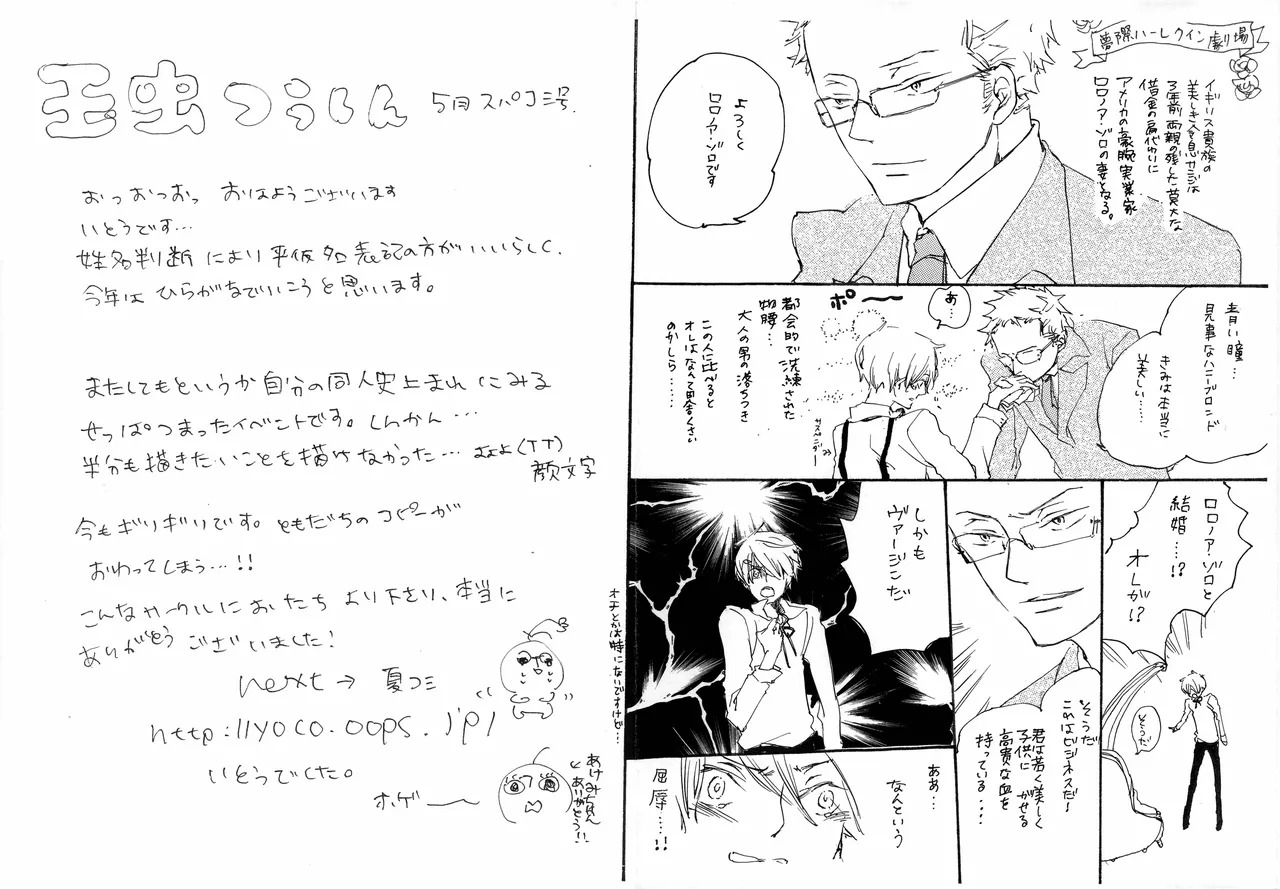 夢際ハーレクイン劇場
イギリス貴族の
美しき令息サンジは
3年前両親の残した莫大な
借金の肩代わりに
アメリカの豪腕実業家
ロロノア・ゾロの妻となる。
よろしく
ロロノア・ゾロです
青い瞳…
見事なハニーブロンド
きみは本当に
美しい……
あ…
ポーー
都会的で洗練された
物腰…
大人の男の落ちつき
この人に比べると
オレはなんて田舎くさい
のかしら……
サスペンダー
ロロノア・ゾロと
結婚……!?
オレが!?
そうだ
そうだ
これはビジネスだ
君は若く美しく
子供に
高貴な血を
持っている…
しかも
ヴァージンだ
ああ…
なんという
屈辱……!!
オチとかは特にないですけど…
王虫つうしん 5月スパコミ号.
おっおっおっ おはようございます
いとうです…
姓名判断により平仮名表記の方がいいらしく、
今年はひらがなでいこうと思います。
またしてもというか自分の同人史上まれにみる
せっぱつまったイベントです。しんかん…
半分も描きたいことを描けなかった… むよよ(TT)
顔文字
今もギリギリです。ともだちのコピーが
おわってしまう…!!
こんなサークルにおたちより下さり、本当に
ありがとうございました!
next→ 夏コミ
http://yoco.oops.jp/
いとうでした。
ホゲーー
あけみちゃん
ありがとう!!